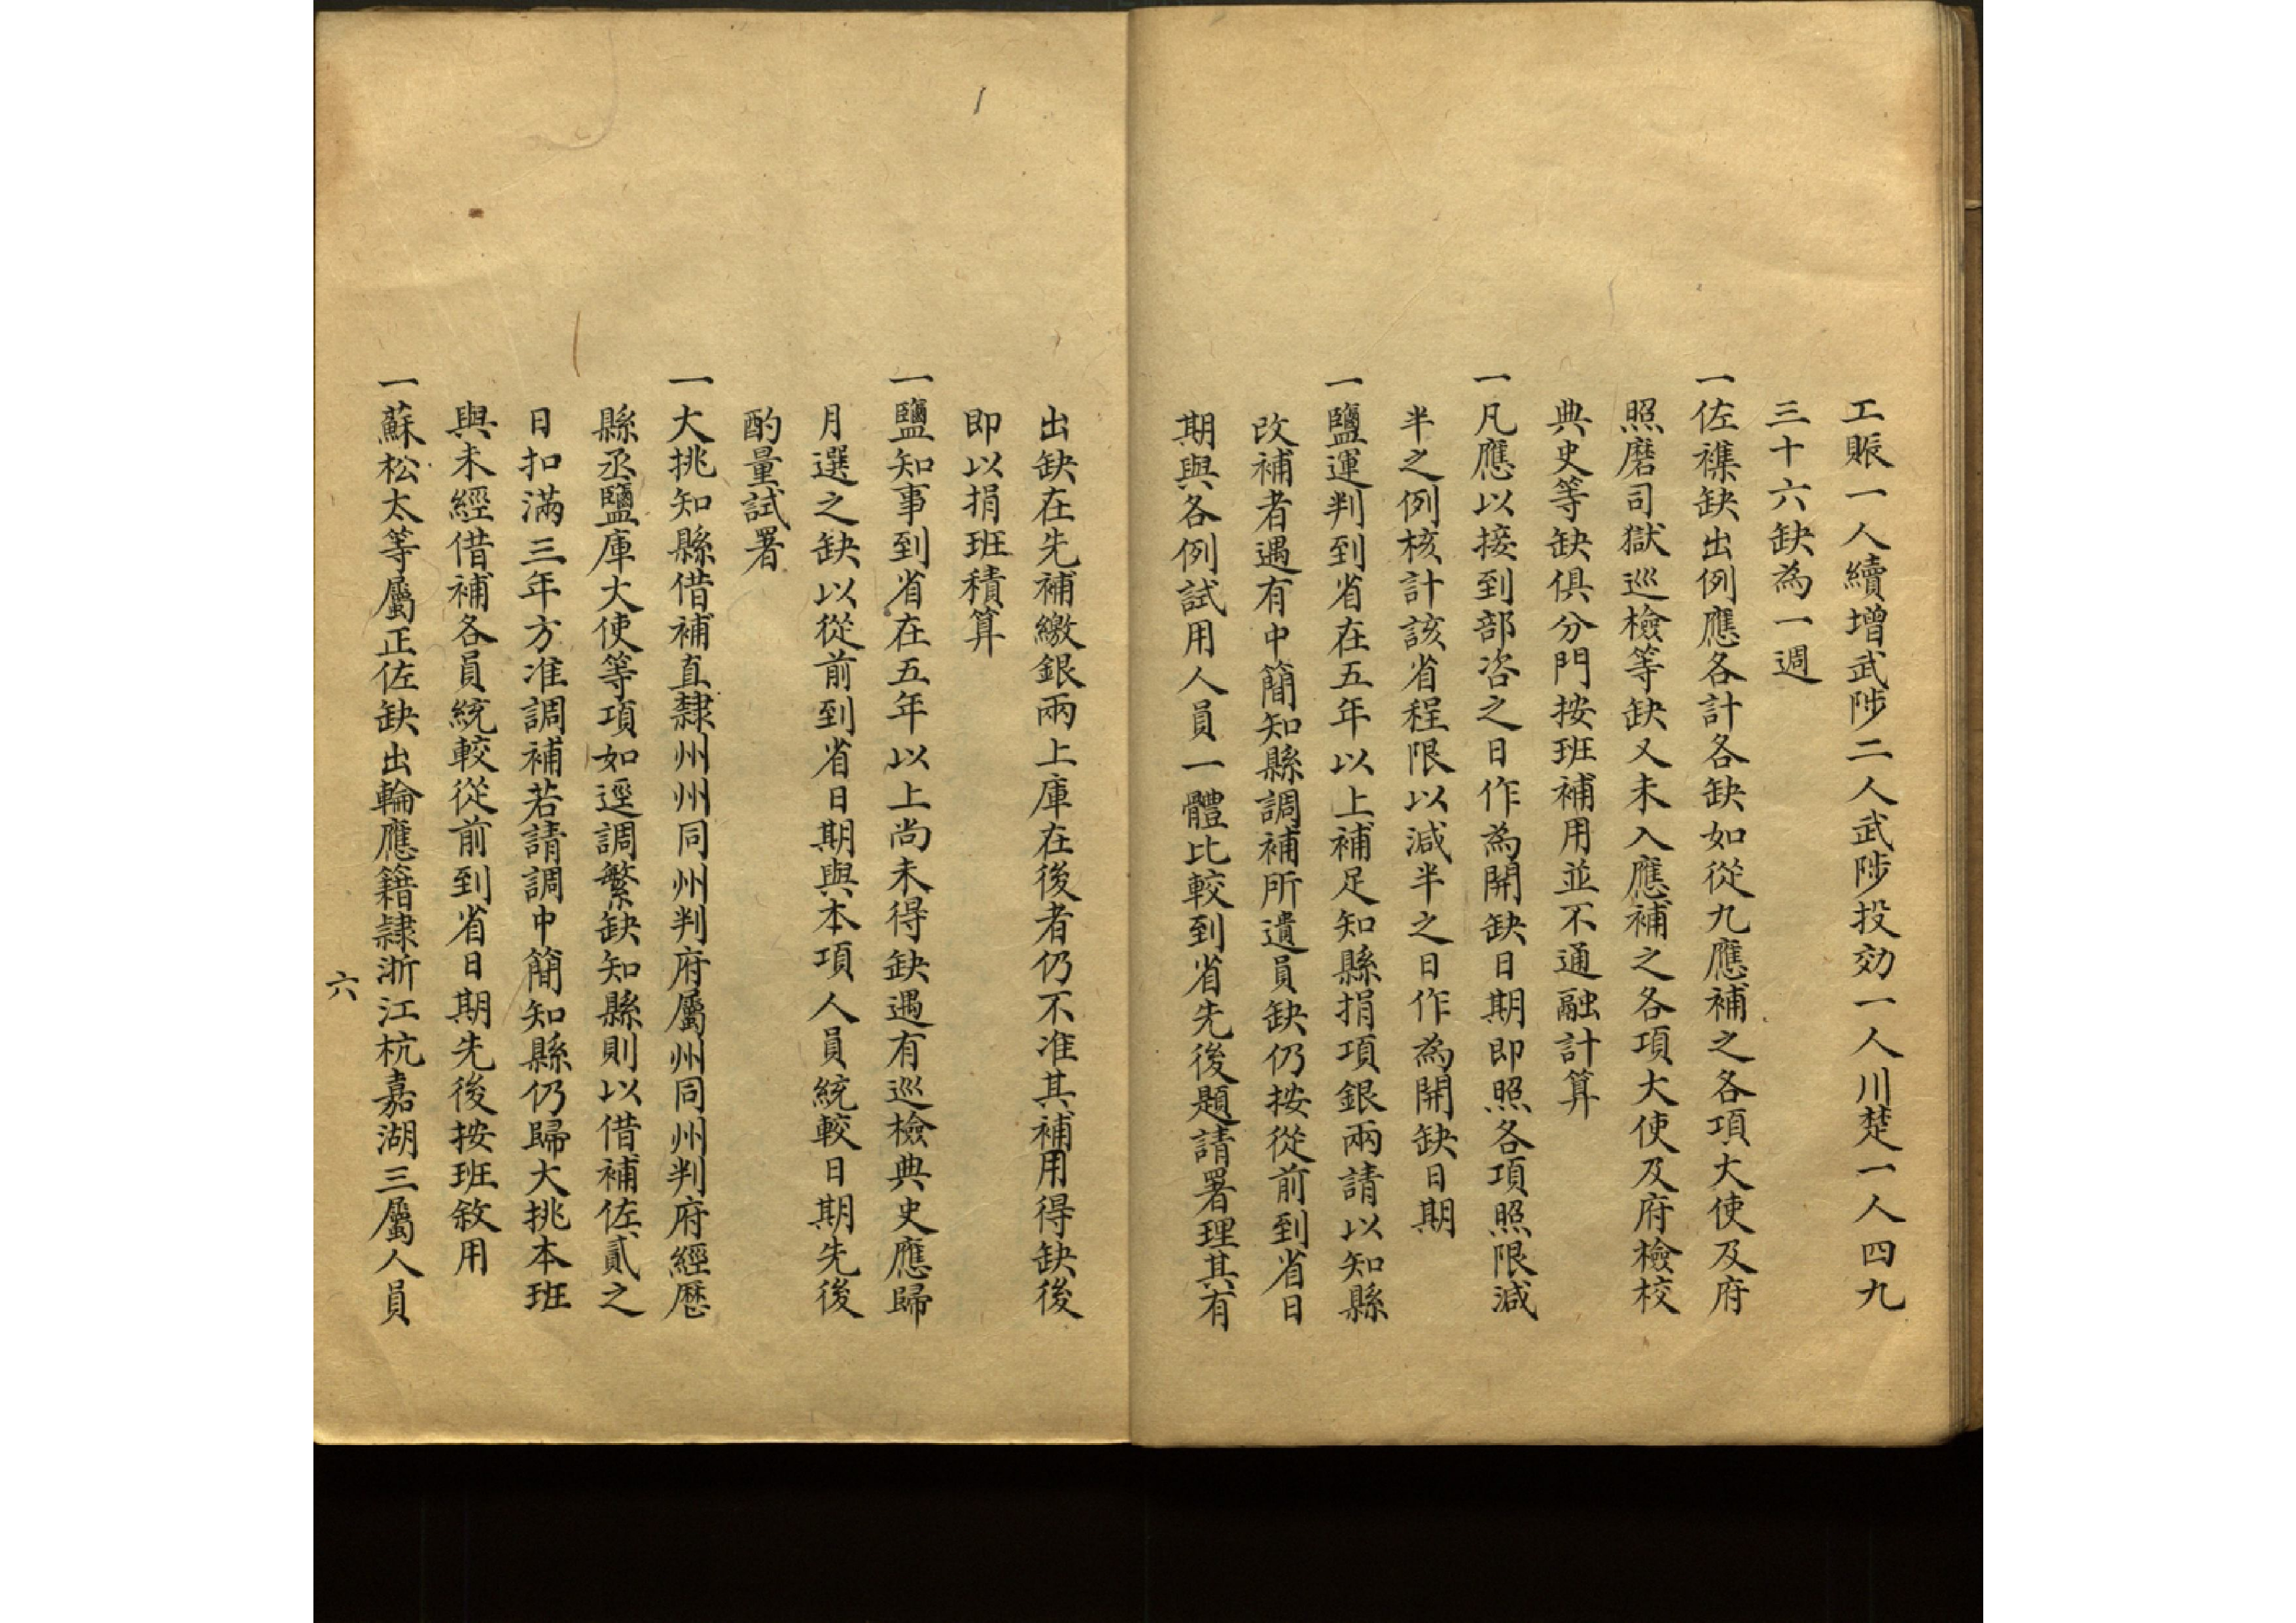 工賬一人續增武陟二人武陟投効一人川楚一人四九
三十六缺為一週
一佐襍缺出例應各計各缺如從九應補之各項大使及府
照磨司獄巡檢等缺又未入應補之各項大使及府檢校
典史等缺俱分門按班補用並不通融計算
一凡應以接到部咨之日作為開缺日期即照各項照限減
半之例核計該省程限以減半之日作為開缺日期
一鹽運判到省在五年以上補足知縣捐項銀兩請以知縣
改補者遇有中簡知縣調補所遺員缺仍按從前到省日
期與各例試用人員一體比較到省先後題請署理其有
出缺在先補繳銀兩上庫在後者仍不准其補用得缺後
即以捐班積算
一鹽知事到省在五年以上尚未得缺遇有巡檢典史應歸
月選之缺以從前到省日期與本項人員統較日期先後
酌量試署
一大挑知縣借補直隸州州同州判府屬州同州判府經歷
縣丞鹽庫大使等項如逕調繁缺知縣則以借補佐貳之
日扣滿三年方准調補若請調中簡知縣仍歸大挑本班
與未經借補各員統較從前到省日期先後按班敘用
一蘇松太等屬正佐缺出輪應籍隸浙江杭嘉湖三屬人員
六